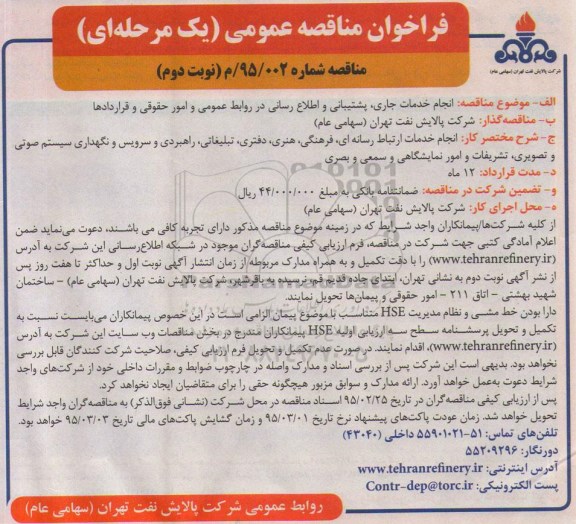 فراخوان مناقصه عمومی (یک مرحله‌ای)
مناقصه شماره ۹۵/۰۰۲/م (نوبت دوم)
شرکت پالایش نفت تهران (سهامی عام)
الف- موضوع مناقصه: انجام خدمات جاری، پشتیبانی و اطلاع رسانی در روابط عمومی و امور حقوقی و قراردادها
ب- مناقصه‌گذار: شرکت پالایش نفت تهران (سهامی عام)
ج- شرح مختصر کار: انجام خدمات ارتباط رسانه ای، فرهنگی، هنری، دفتری، تبلیغاتی، راهبردی و سرویس و نگهداری سیستم صوتی
و تصویری، تشریفات و امور نمایشگاهی و سمعی و بصری
د- مدت قرارداد: ۱۲ ماه
و- تضمین شرکت در مناقصه: ضمانتنامه بانکی به مبلغ ۴۴/۰۰۰/۰۰۰ ریال
ه- محل اجرای کار: شرکت پالایش نفت تهران (سهامی عام)
از کلیه شرکت‌ها/پیمانکاران واجد شرایط که در زمینه موضوع مناقصه مذکور دارای تجربه کافی می باشند، دعوت می‌نماید ضمن
اعلام آمادگی کتبی جهت شرکت در مناقصه، فرم ارزیابی کیفی مناقصه‌گران موجود در شبکه اطلاع‌رسانی این شرکت به آدرس
(www.tehranrefinery.ir) را با دقت تکمیل و به همراه مدارک مربوطه از زمان انتشار آگهی نوبت اول و حداکثر تا هفت روز پس
از نشر آگهی نوبت دوم به نشانی تهران، ابتدای جاده قدیم قم، نرسیده به باقرشهر، شرکت پالایش نفت تهران (سهامی عام) - ساختمان
شهید بهشتی - اتاق ۲۱۱ - امور حقوقی و پیمان‌ها تحویل نمایند.
دارا بودن خط مشی و نظام مدیریت HSE متناسب با موضوع پیمان الزامی است در این خصوص پیمانکاران می‌بایست نسبت به
تکمیل و تحویل پرسشنامه سطح سه ارزیابی اولیه HSE پیمانکاران مندرج در بخش مناقصات وب سایت این شرکت به آدرس
(www.tehranrefinery.ir)، اقدام نمایند. در صورت عدم تکمیل و تحویل فرم ارزیابی کیفی، صلاحیت شرکت کنندگان قابل بررسی
نخواهد بود. بدیهی است این شرکت پس از بررسی اسناد و مدارک واصله در چارچوب ضوابط و مقررات داخلی خود از شرکت‌های واجد
شرایط دعوت به‌عمل خواهد آورد. ارائه مدارک و سوابق مزبور هیچگونه حقی را برای متقاضیان ایجاد نخواهد کرد.
پس از ارزیابی کیفی مناقصه‌گران در تاریخ ۹۵/۰۲/۲۵ اسناد مناقصه در محل شرکت (نشانی فوق‌الذکر) به مناقصه‌گران واجد شرایط
تحویل خواهد شد. زمان عودت پاکت‌های پیشنهاد نرخ تاریخ ۹۵/۰۳/۰۱ و زمان گشایش پاکت‌های مالی تاریخ ۹۵/۰۳/۰۳ خواهد بود.
تلفن‌های تماس: ۵۱-۵۵۹۰۱۰۲۱ داخلی (۴۳۰۴۰)
دورنگار: ۵۵۲۰۹۲۹۶
آدرس اینترنتی: www.tehranrefinery.ir
پست الکترونیکی: Contr-dep@torc.ir
روابط عمومی شرکت پالایش نفت تهران (سهامی عام)